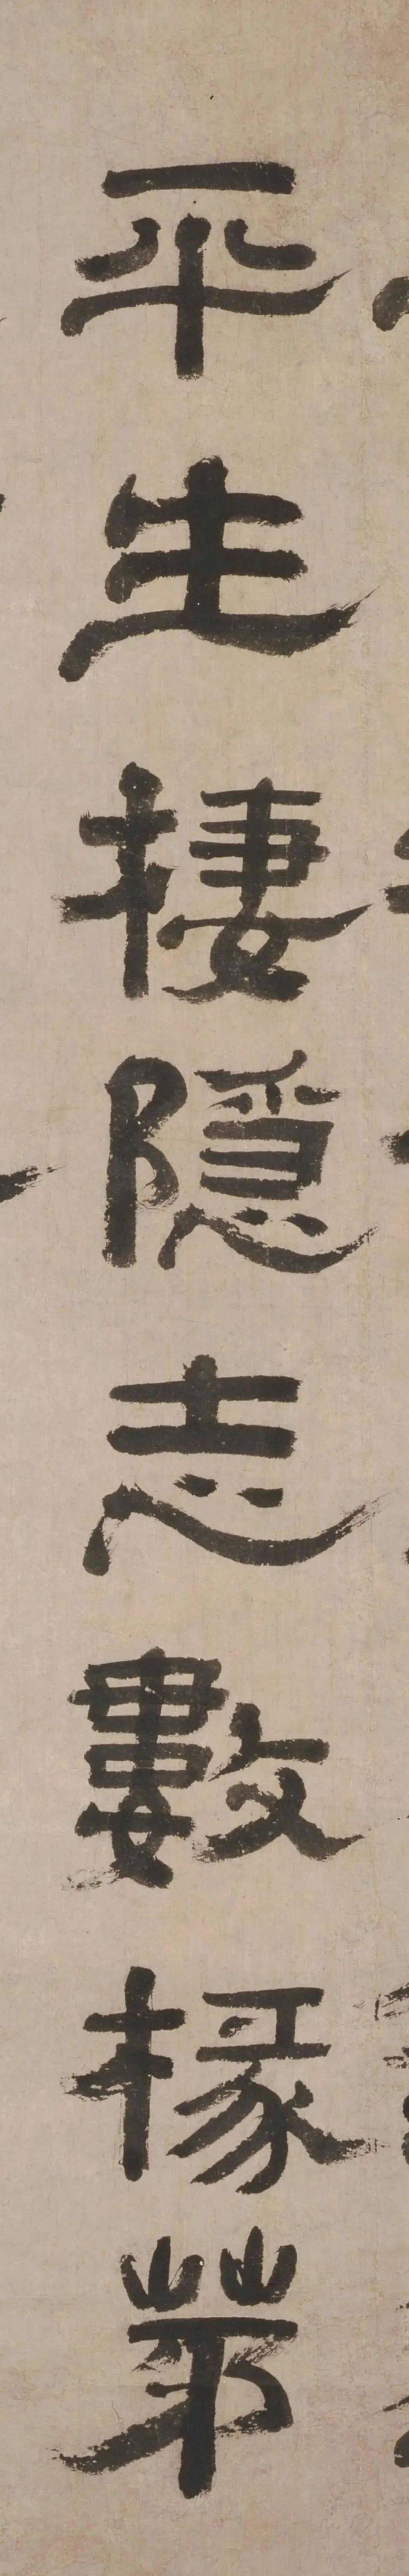 平生棲隱志數椽茅